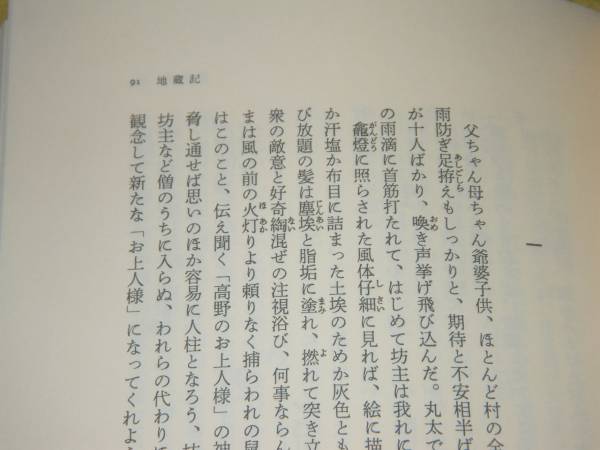 91 地蔵記
一
父ちゃん母ちゃん爺婆子供、ほとんど村の全
雨防ぎ足拵えもしっかりと、期待と不安相半ば
が十人ばかり、喚き声挙げ飛び込んだ。丸太で
の雨滴に首筋打たれて、はじめて坊主は我れに
龕燈に照らされた風体仔細に見れば、絵に描
か汗塩か布目に詰まった土埃のためか灰色とも
び放題の髪は塵埃と脂垢に塗れ、撚れて突き立
衆の敵意と好奇綯混ぜの注視浴び、何事ならん
まは風の前の火灯りより頼りなく捕らわれの鼠
はこのこと、伝え聞く「高野のお上人様」の神
脅し通せば思いのほか容易に人柱となろう、
坊主など僧のうちに入らぬ、われらの代わりに
観念して新たな「お上人様」になってくれよう